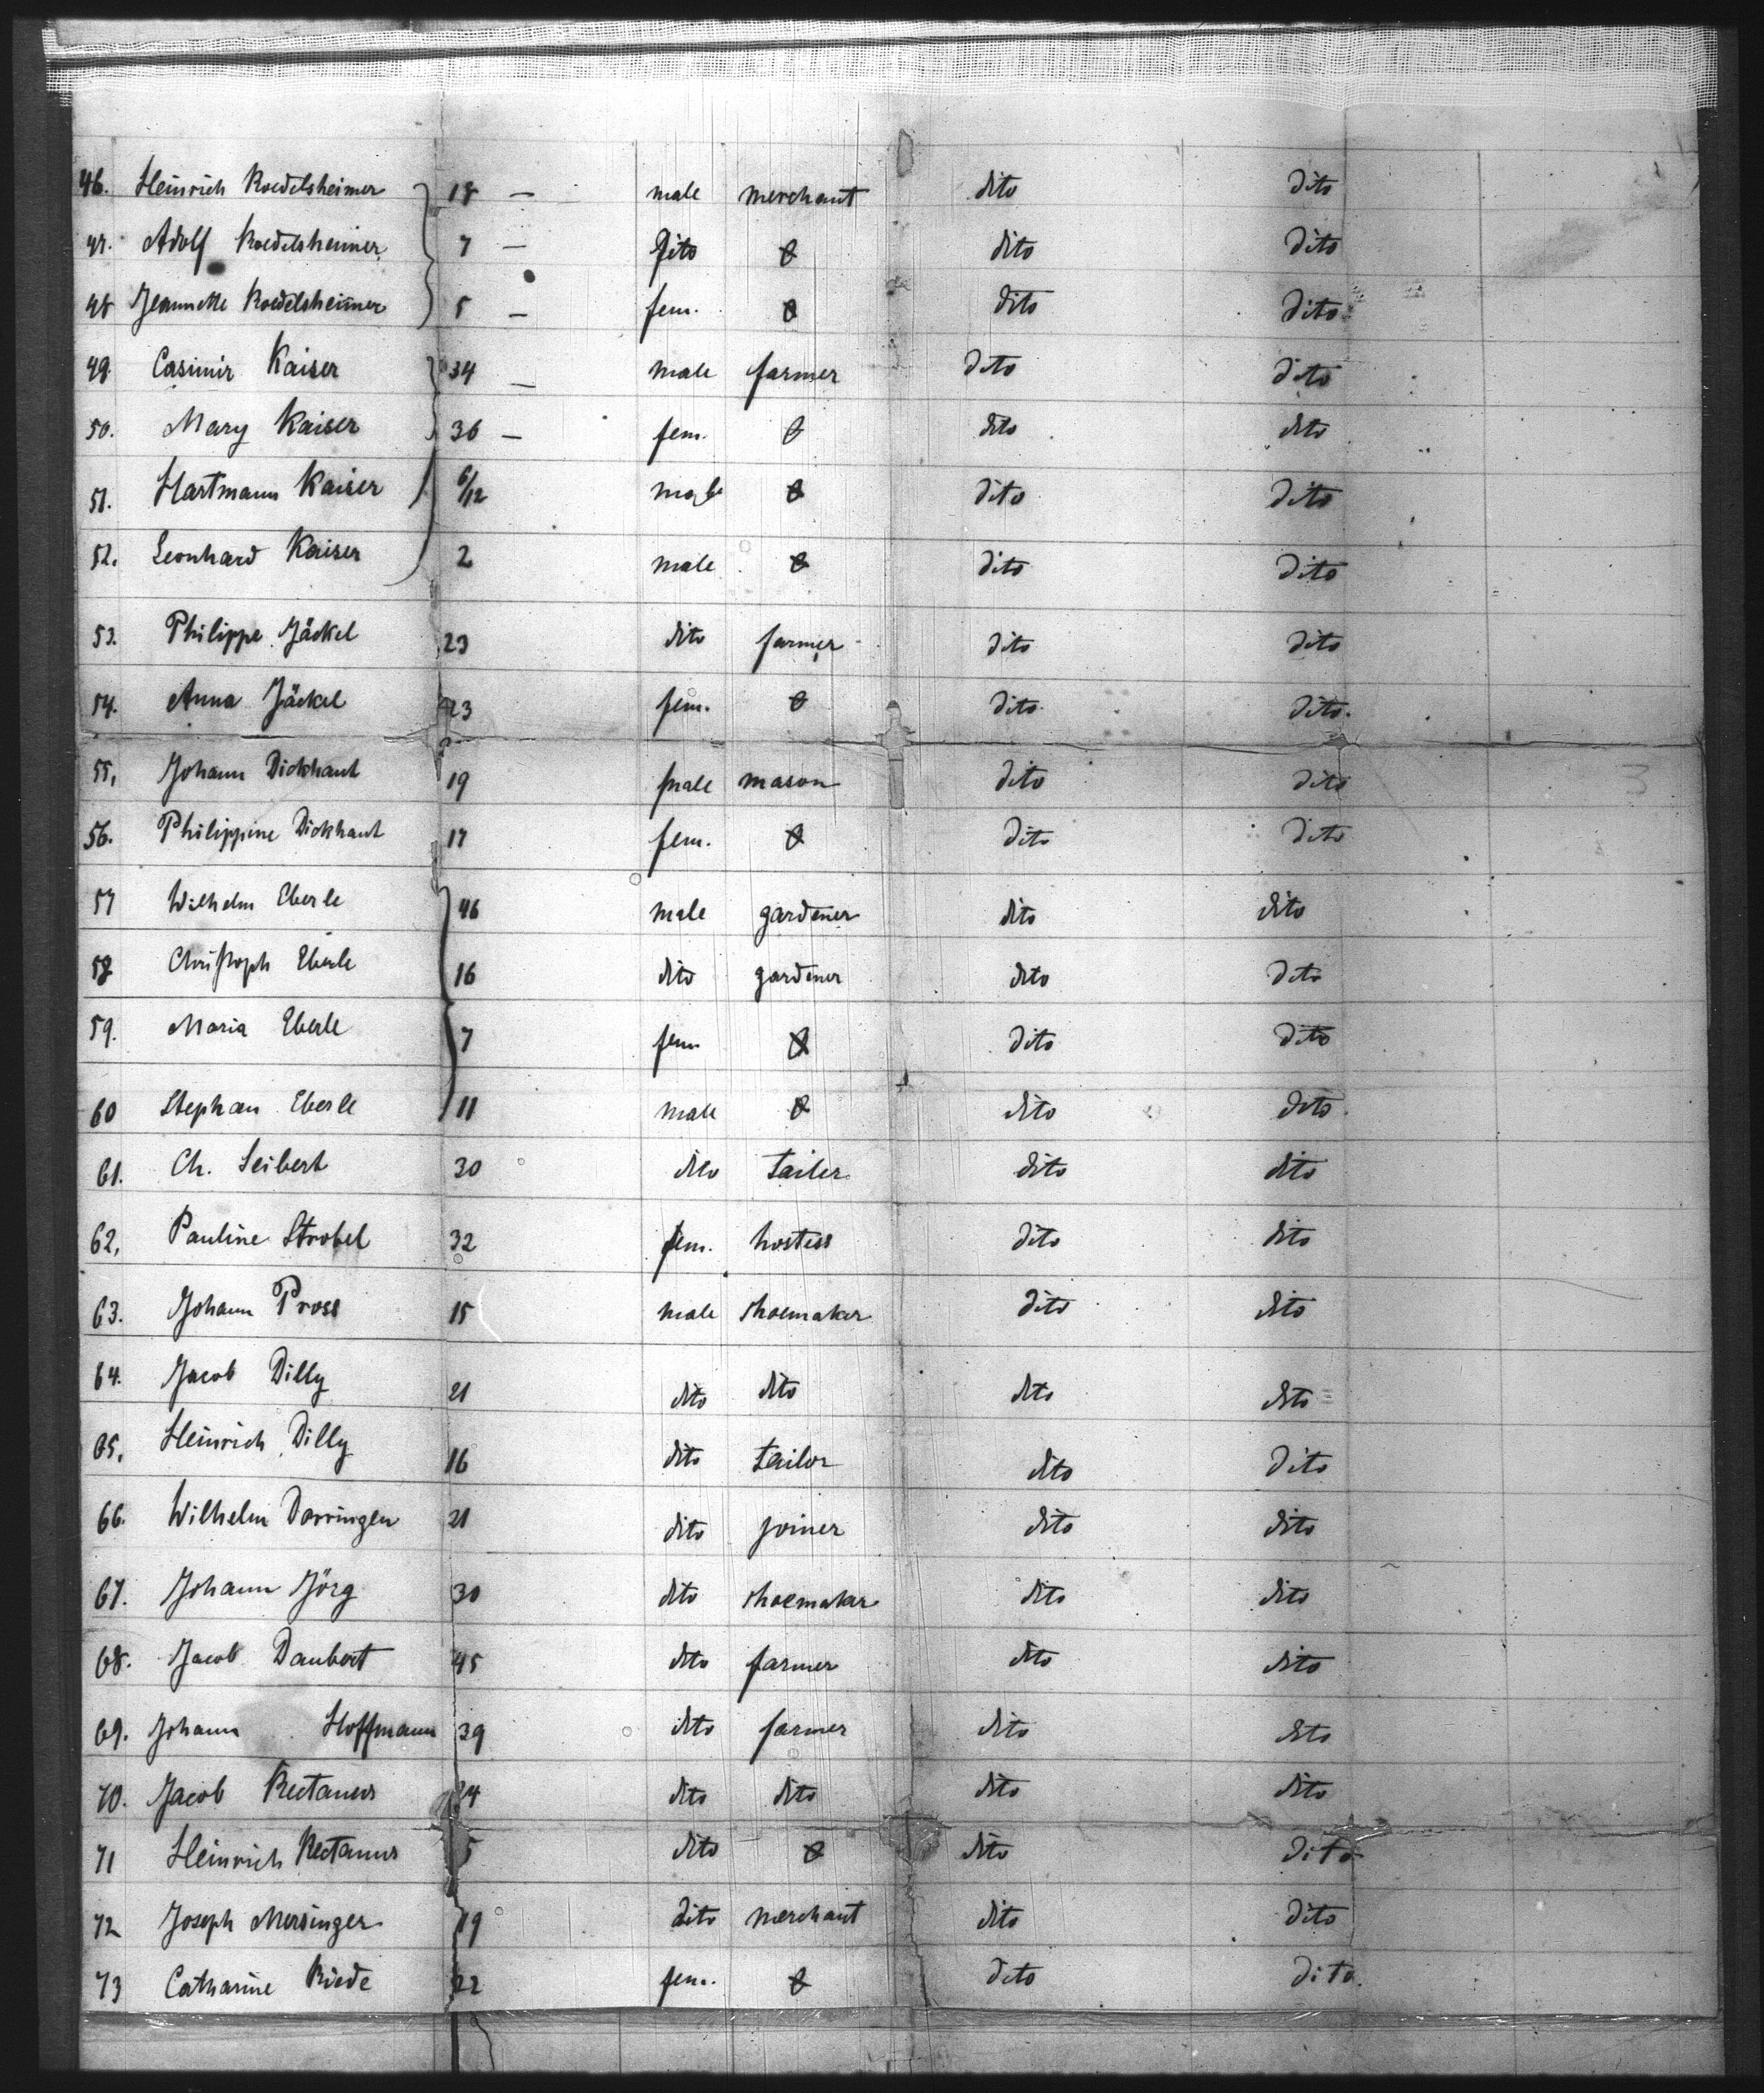 46. Heinrich Roedelsheimer 18 — male merchant dito dito
47. Adolf Roedelsheimer 7 — dito 0 dito dito
48 Jeannette Roedelsheimer 5 — fem. 0 dito dito
49. Casimir Kaiser 34 — male farmer dito dito
50. Mary Kaiser 36 — fem. 0 dito dito
51. Hartmann Kaiser 6/12 male 0 dito dito
52. Leonhard Kaiser 2 male 0 dito dito
53. Philippe Jäckel 23 dito farmer dito dito
54. Anna Jäckel 23 fem. 0 dito dito.
55. Johann Dickhaut 19 male mason dito dito
56. Philippine Dickhaut 17 fem. 0 dito dito
57 Wilhelm Eberle 46 male gardener dito dito
58 Christoph Eberle 16 dito gardener dito dito
59. Maria Eberle 7 fem 0 dito dito
60 Stephan Eberle 11 male 0 dito dito.
61. Ch. Seibert 30 dito tailer dito dito
62. Pauline Strobel 32 fem. hostess dito dito
63. Johann Pross 15 male shoemaker dito dito
64. Jacob Dilly 21 dito dito dito dito
65. Heinrich Dilly 16 dito tailor dito dito
66. Wilhelm Dorringen 21 dito joiner dito dito
67. Johann Jörg 30 dito shoemaker dito dito
68. Jacob Daubert 45 dito farmer dito dito
69. Johann Hoffmann 39 dito farmer dito dito
70. Jacob Rectanus 24 dito dito dito dito
71 Heinrich Rectanus 5 dito 0 dito dito
72 Joseph Mersinger 19 dito merchant dito dito
73 Catharine Riede 22 fem. 0 dito dito.